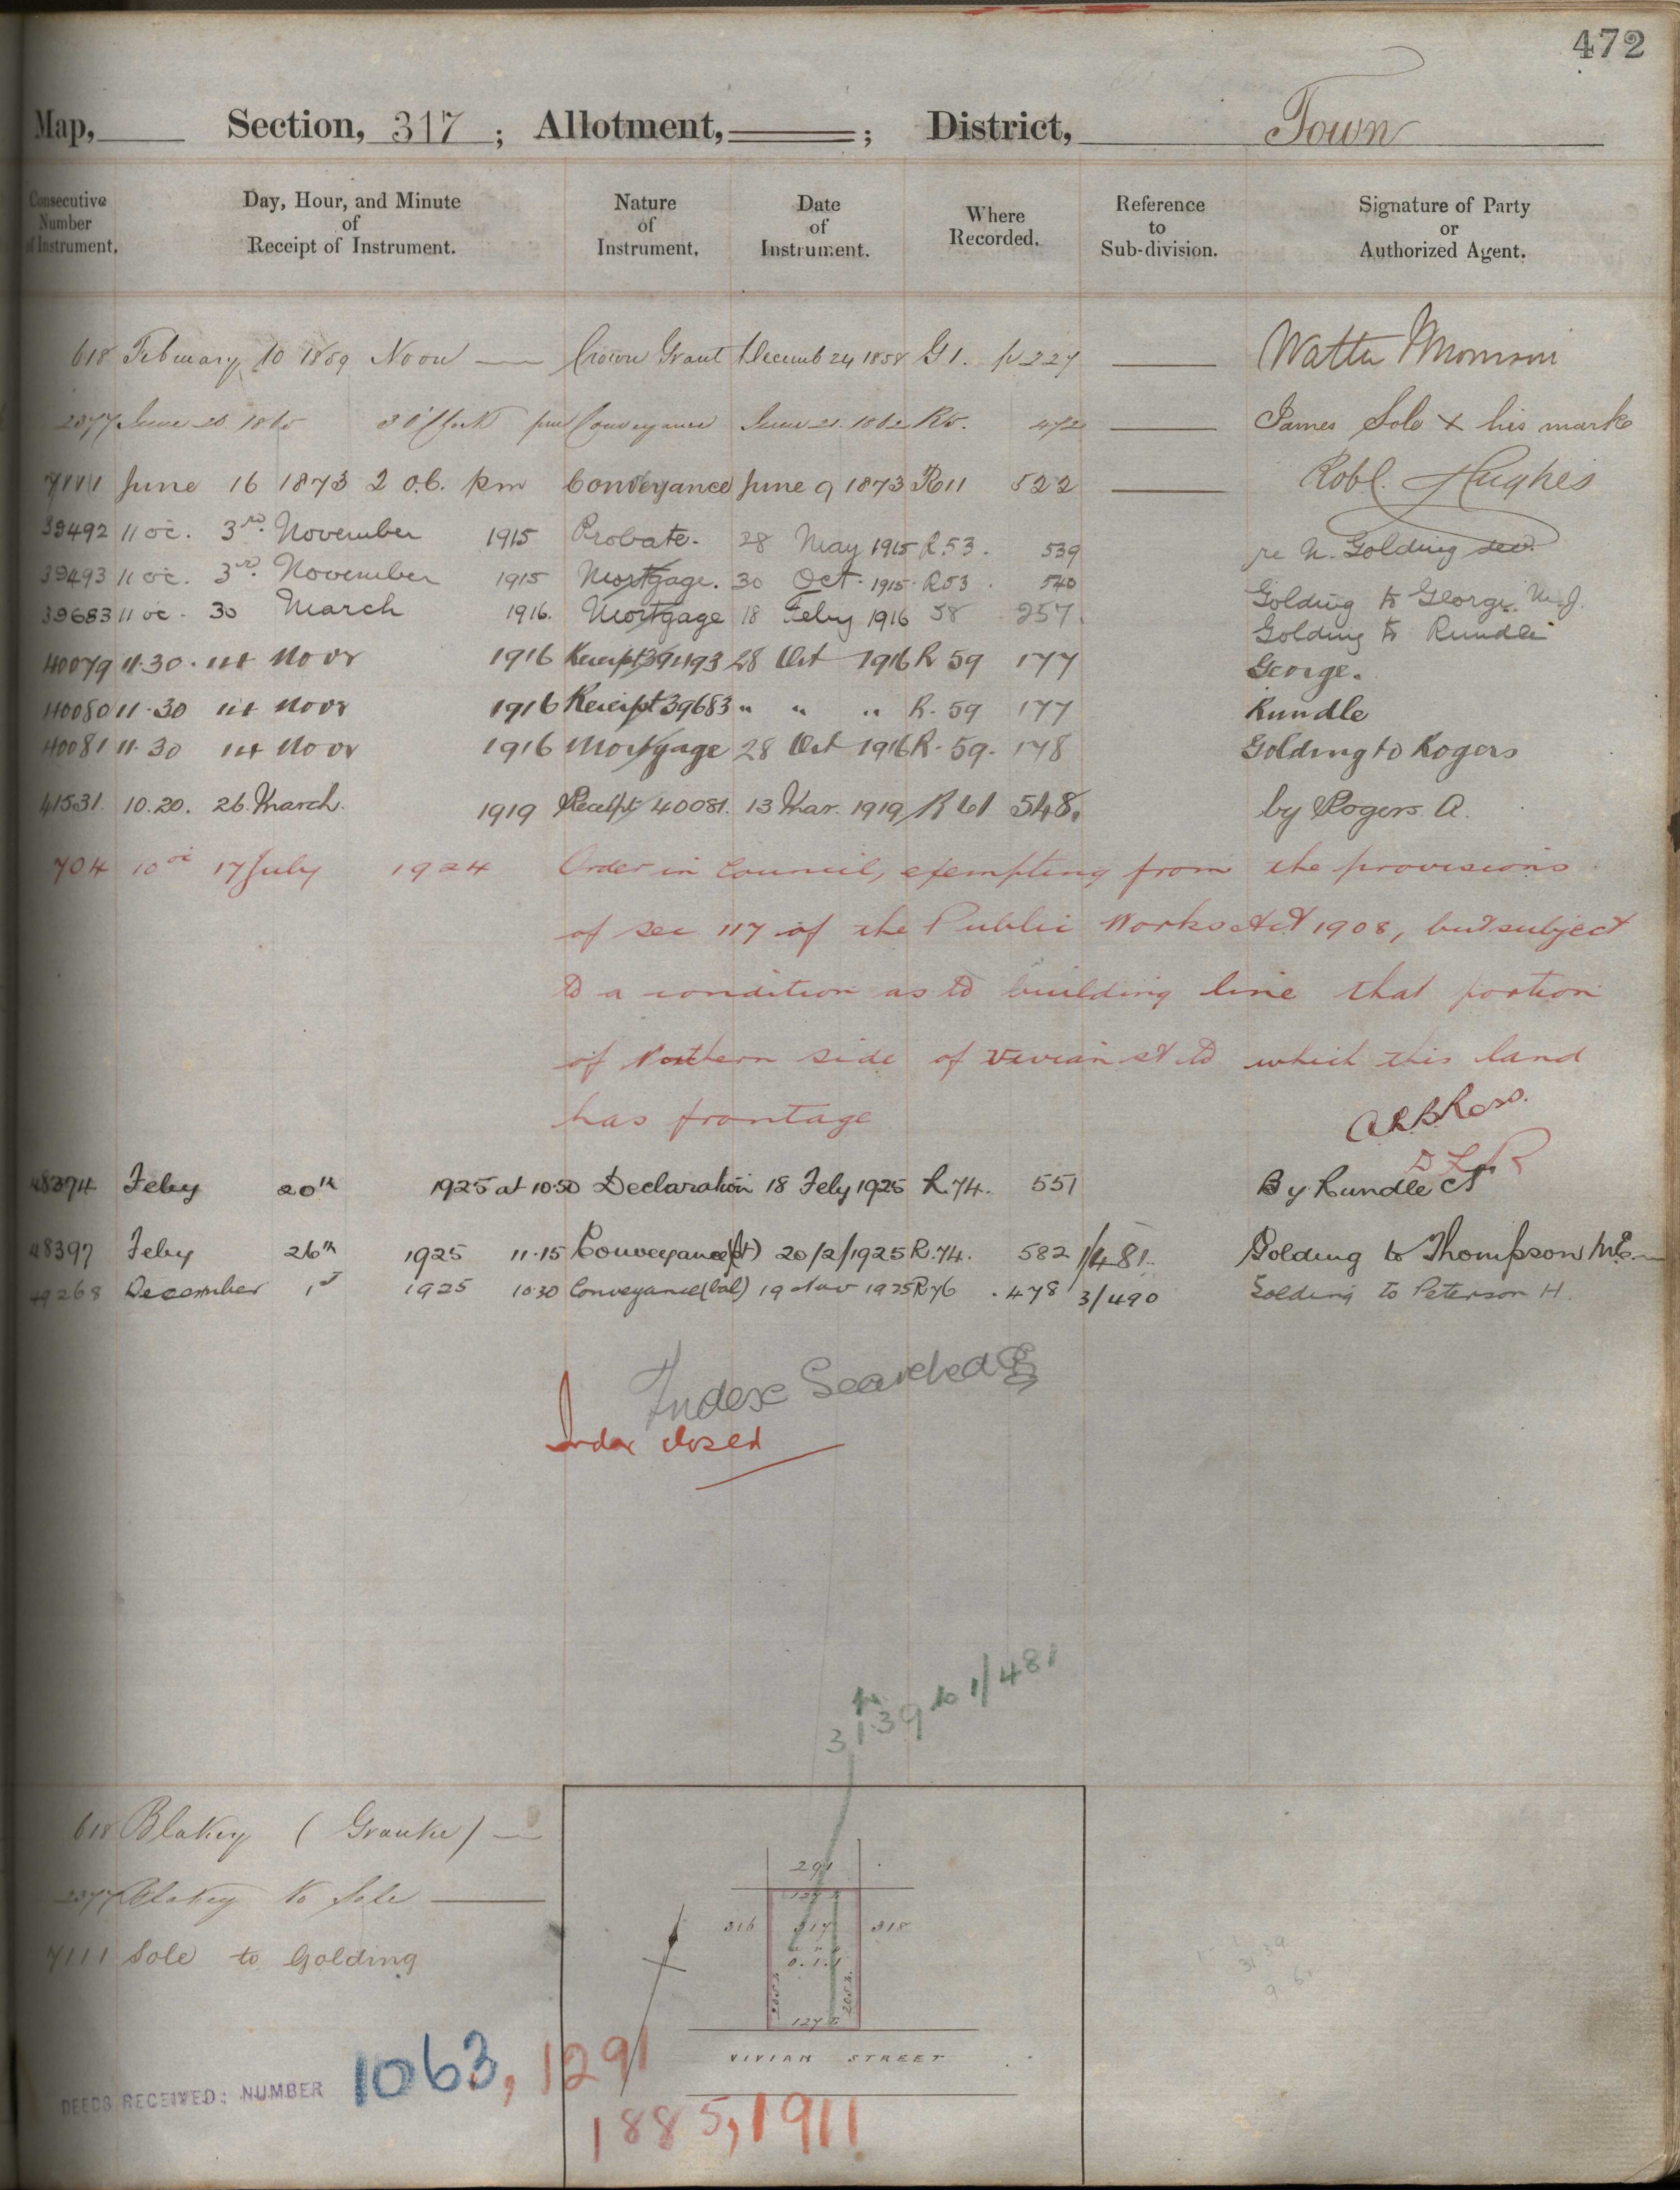 472
Map, Section, 317 ; Allotment, ; District, Town
Consecutive Number of Instrument.
Day, Hour, and Minute of Receipt of Instrument.
Nature of Instrument.
Date of Instrument.
Where Recorded.
Reference to Sub-division.
Signature of Party or Authorized Agent.
618 February 10 1859 Noon Crown Grant Decemb 24 1858 G 1. p 227
2377 June 1865 pm Conveyance June 21. 1862 R5. 472 James Sole X his mark
7111 June 16 1873 2 o.c. pm Conveyance June 9 1873 R11 522 Robt. Hughes
39492 11 oc. 3rd November 1915 Probate. 28 May 1915 R.53. 539 re N. Golding decd.
39493 11 oc. 3rd November 1915 Mortgage. 30 Oct. 1915. R53. 540 Golding to George. M.J.
39683 11 oc. 30 March 1916. Mortgage 18 Feby 1916 58 257. Golding to Rundle
40079 11.30. 1st Novr 1916 Receipt 39493 28 Oct 1916 R 59 177 George.
40080 11.30 1st Novr 1916 Receipt 39683 " " " R. 59 177 Rundle
40081 11.30 1st Novr 1916 Mortgage 28 Oct 1916 R. 59. 178 Golding to Rogers
41531. 10.20. 26. March. 1919 Receipt 40081. 13 Mar. 1919 R 61 548. by Rogers A.
704 10 oc 17 July 1924 Order in Council, exempting from the provisions
of sec 117 of the Public Works Act 1908, but subject
to a condition as to building line that portion
of Northern side of Vivian St to which this land
has frontage
D L R
48394 Feby 20th 1925 at 10.50 Declaration 18 Feby 1925 R.74. 551 By Rundle
48397 Feby 26th 1925 11.15 Conveyance (pt) 20/2/1925 R.74. 582 1/481. Golding to Thompson M.E.
49268 December 1st 1925 10.30 Conveyance (bal) 19 Nov 1925 R76 . 478 3/490 Golding to Peterson H.
Index Searched
Index closed
31.39 to 1/481
618 Blakey (Grantee)
2377 Blakey to Sole
7111 Sole to Golding
291
316 317 318
0.1.1
VIVIAN STREET
DEEDS RECEIVED: NUMBER 1063, 1291
1885, 1911